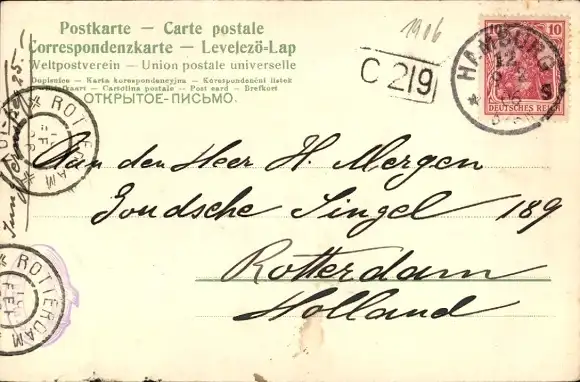 Postkarte — Carte postale
Correspondenzkarte — Levelező-Lap
Weltpostverein — Union postale universelle
Dopisnice — Karta korespondencyjna — Korespondenční listek
Cartolina postale — Post card — Brefkort
ОТКРЫТОЕ-ПИСЬМО.
1906
C 2 19
10
DEUTSCHES REICH
HAMBURG
12
S
ROTTERDAM
FEB
ROTTERDAM
FEB
Aan den Heer H. Mergen
Goudsche Singel 189
Rotterdam
Holland